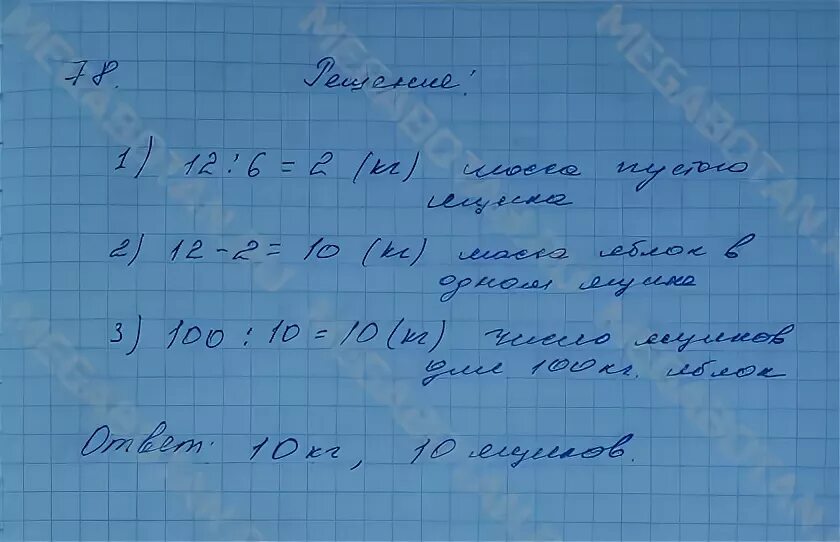 78. Решение!
1) 12:6=2 (кг) масса пустого
ящика
2) 12-2=10 (кг) масса яблок в
одном ящике
3) 100:10=10(кг) число ящиков
для 100кг. яблок
Ответ: 10кг, 10 ящиков.
MEGABOTAN.RU